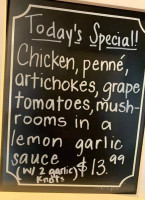 Today's Special!
Chicken, penné,
artichokes, grape
tomatoes, mush-
rooms in a
lemon garlic
sauce $13.99
(w/ 2 garlic
knots)